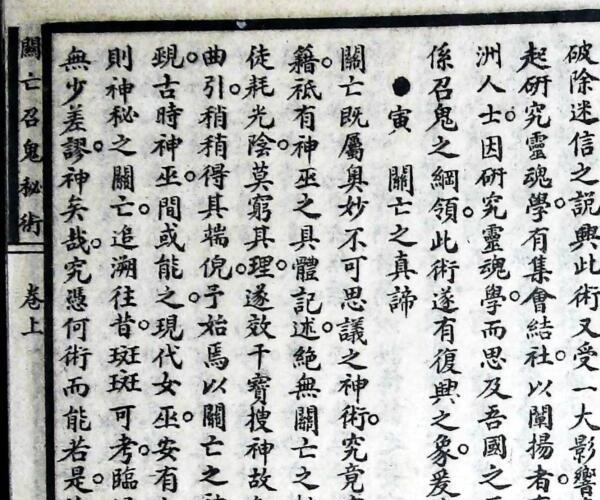 破除迷信之說興此術又受一大影響
起研究靈魂學有集會結社以闡揚者
洲人士因研究靈魂學而思及吾國之
係召鬼之綱領此術遂有復興之象爰
●寅　關亡之真諦
關亡既屬奧妙不可思議之神術究竟
籍祗有神巫之具體記述絕無關亡之
徒耗光陰莫窮其理遂效干寶搜神故
曲引稍稍得其端倪予始焉以關亡之
覡古時神巫間或能之現代女巫安有
則神秘之關亡追溯往昔斑斑可考臨
無少差謬神矣哉究憑何術而能若是
關亡召鬼秘術　卷上